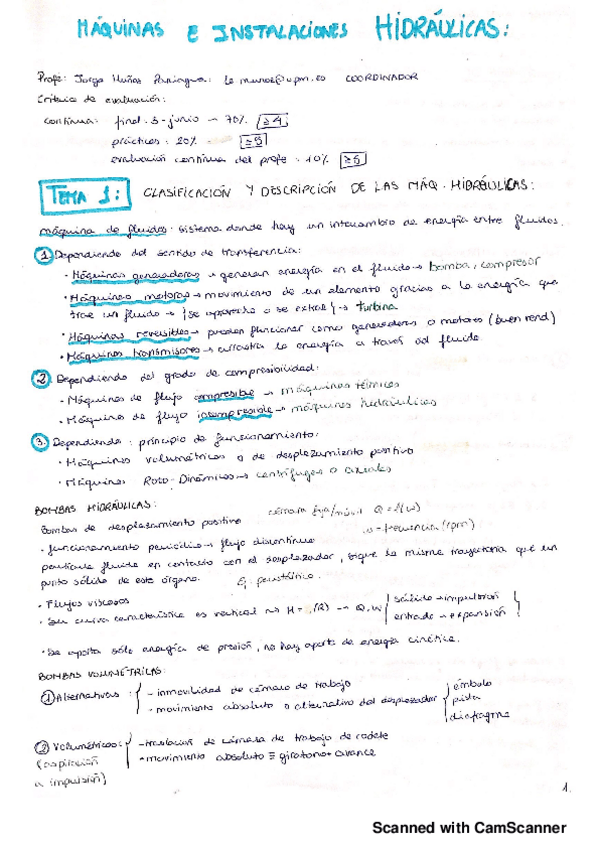 MÁQUINAS E INSTALACIONES HIDRÁULICAS:
Profe: Jorge Muñoz COORDINADOR
Criterio de evaluación:
continua: final 3-junio → 70% ≥4
prácticas: 20% ≥5
evaluación continua del profe: 10% ≥5
TEMA 1: CLASIFICACIÓN Y DESCRIPCIÓN DE LAS MÁQ. HIDRÁULICAS:
máquina de fluidos: sistema donde hay un intercambio de energía entre fluidos.
① Dependiendo del sentido de transferencia:
• Máquinas generadoras → generan energía en el fluido → bomba, compresor
• Máquinas motoras → movimiento de un elemento gracias a la energía que
trae un fluido → {se aprovecha o se extrae} → turbina
• Máquinas reversibles → pueden funcionar como generadoras o motores (buen rend)
• Máquinas transmisores → la energía a través del fluido
② Dependiendo del grado de compresibilidad:
• Máquinas de flujo compresible → máquinas térmicas
• Máquina de flujo incompresible → máquinas hidráulicas
③ Dependiendo: principio de funcionamiento:
• Máquinas volumétricas o de desplazamiento positivo
• Máquinas Roto-Dinámicas → centrífugas o axiales
BOMBAS HIDRÁULICAS:
Bombas de desplazamiento positivo cámara fija/móvil Q = f(w)
w → frecuencia (rpm)
• funcionamiento periódico → flujo discontinuo
partícula fluida en contacto con el desplazador, sigue la misma trayectoria que un
punto sólido de este órgano. Ej: peristáltica.
• Flujos viscosos
• Su curva característica es vertical → Q, w { salida → impulsión
entrada → expansión }
• Se aporta sólo energía de presión, no hay aporte de energía cinética.
BOMBAS VOLUMÉTRICAS:
① Alternativas: { - inmovilidad de cámara de trabajo
- movimiento absoluto o alternativo del desplazador { émbolo
diafragma
② Volumétricos: { - traslación de cámara de trabajo de rodete
(aspiración • movimiento absoluto ≡ giratorio + avance
a impulsión)
1.
Scanned with CamScanner